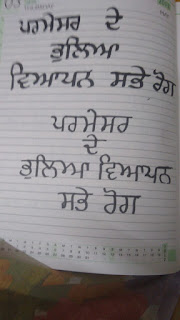 ਪਰਮੇਸਰ ਦੇ
ਭੁਲਿਆ
ਵਿਆਪਨ ਸਭੇ ਰੋਗ
ਪਰਮੇਸਰ
ਦੇ
ਭੁਲਿਆ ਵਿਆਪਨ
ਸਭੇ ਰੋਗ